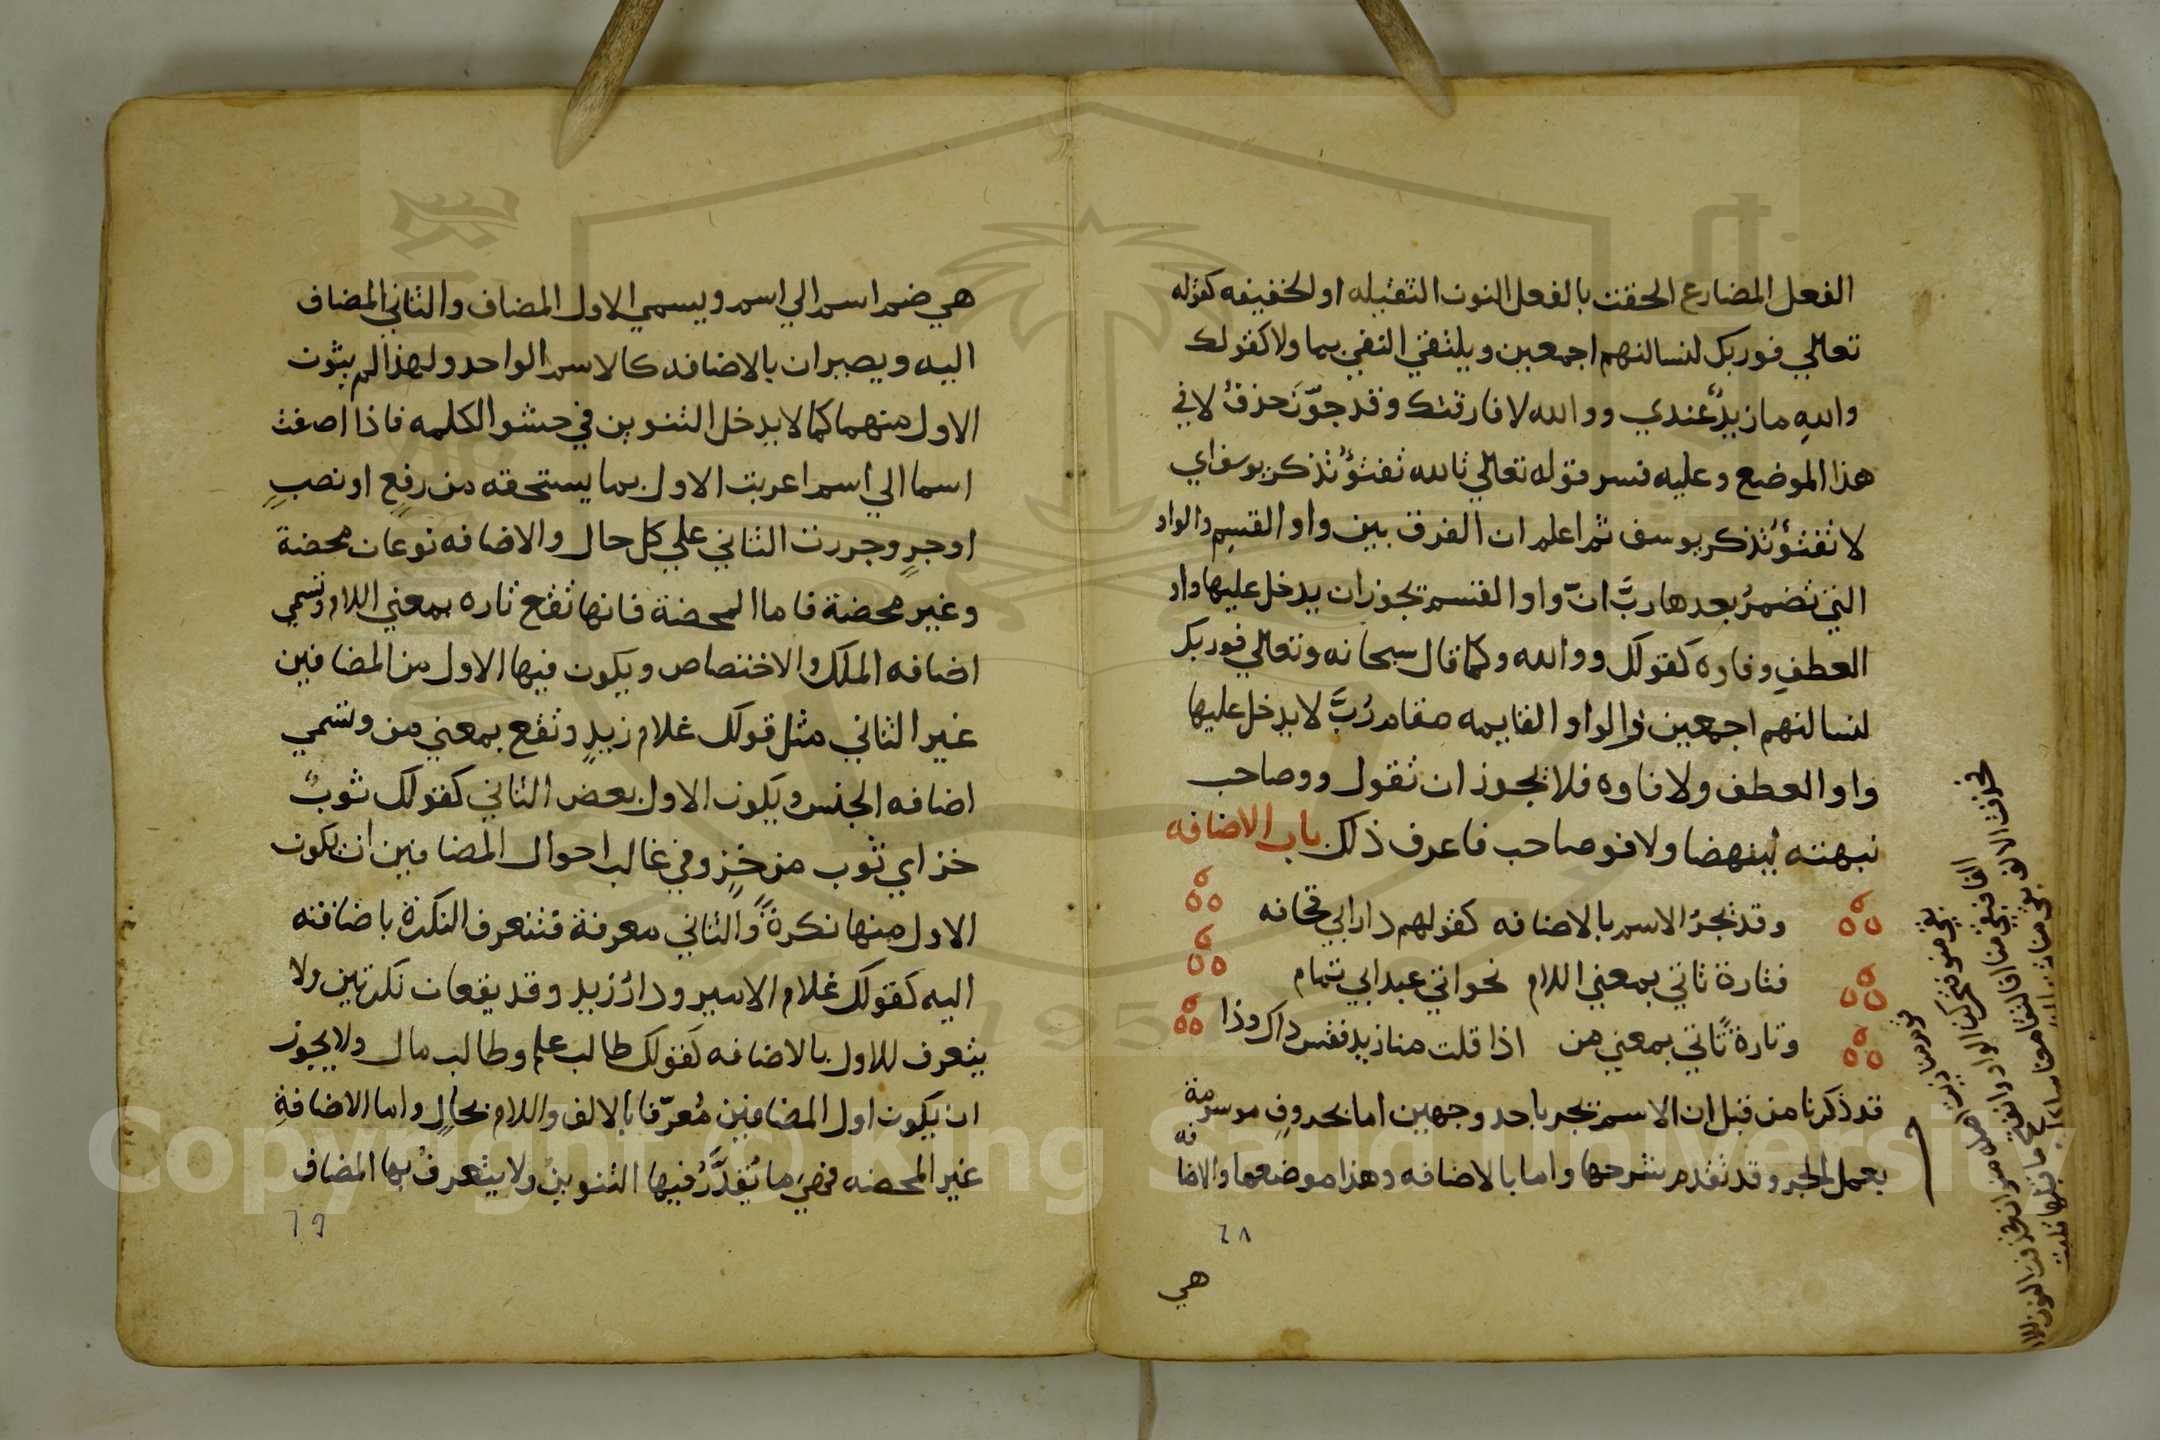 الفعل المضارع الحقت بالفعل النون الثقيله او الخفيفه كقوله
تعالي فوربك لنسالنهم اجمعين ويلتقي النفي بما ولا كقولك
والله ما زيدٌ عندي ووالله لا فارقتك وقد جوّز حذف لا في
هذا الموضع وعليه فسر قوله تعالي تالله تفتؤُ تذكر يوسف اي
لا تفتؤُ تذكر يوسف ثم اعلم ان الفرق بين واو القسم والواو
التي تضمرُ بعدها ربَّ انّ واو القسم تجوز ان يدخل عليها واو
العطف وفاوه كقولك ووالله وكما قال سبحانه وتعالي فوربك
لنسالنهم اجمعين والواو القايمه مقام رُبَّ لا يدخل عليها
واو العطف ولا فاوه فلا يجوز ان تقول ووصاحب
نبهته لينهضا ولا فوصاحب فاعرف ذلك باب الاضافه
وقد تجرُ الاسم بالاضافه كقولهم دار ابي قحافه
فتارة تاتي بمعني اللام نحو اتي عبد ابي تمام
وتارةً تاتي بمعني من اذا قلت منا زيد فقس ذاك وذا
قد ذكرنا من قبل ان الاسم تجر باحد وجهين اما بحروفٍ موسومة
بعمل الجر وقد تقدم شرحها واما بالاضافه وهذا موضعها والاضافه
٦٨
هي
هي ضم اسم الي اسم ويسمي الاول المضاف والثاني المضاف
اليه ويصيران بالاضافه كالاسم الواحد ولهذا لم ينون
الاول منهما كما لا يدخل التنوين في حشو الكلمه فاذا اضفت
اسما الي اسم اعربت الاول بما يستحقه من رفعٍ او نصبٍ
او جرٍ وجررت الثاني علي كل حال والاضافه نوعان محضة
وغير محضة فاما المحضة فانها تقع تاره بمعني اللام وتسمي
اضافه الملك والاختصاص ويكون فيها الاول من المضافين
غير الثاني مثل قولك غلام زيدٍ وتقع بمعني من وتسمي
اضافه الجنس ويكون الاول بعض الثاني كقولك ثوبُ
خز اي ثوب من خزٍ وفي غالب احوال المضافين ان يكون
الاول منها نكرةً والثاني معرفة فتتعرف النكرة باضافته
اليه كقولك غلام الامير ودارُ زيد وقد يقعان نكرتين ولا
يتعرف للاول بالاضافه كقولك طالب علم وطالب مال ولا يجوز
ان يكون اول المضافين مُعرّفا بالالف واللام بحالٍ واما الاضافةِ
غير المحضه فهيَ ما يُقدَّرُ فيها التنوينُ ولا يتعرفُ بها المضاف
٦٩
Copyright © King Saud University
1957